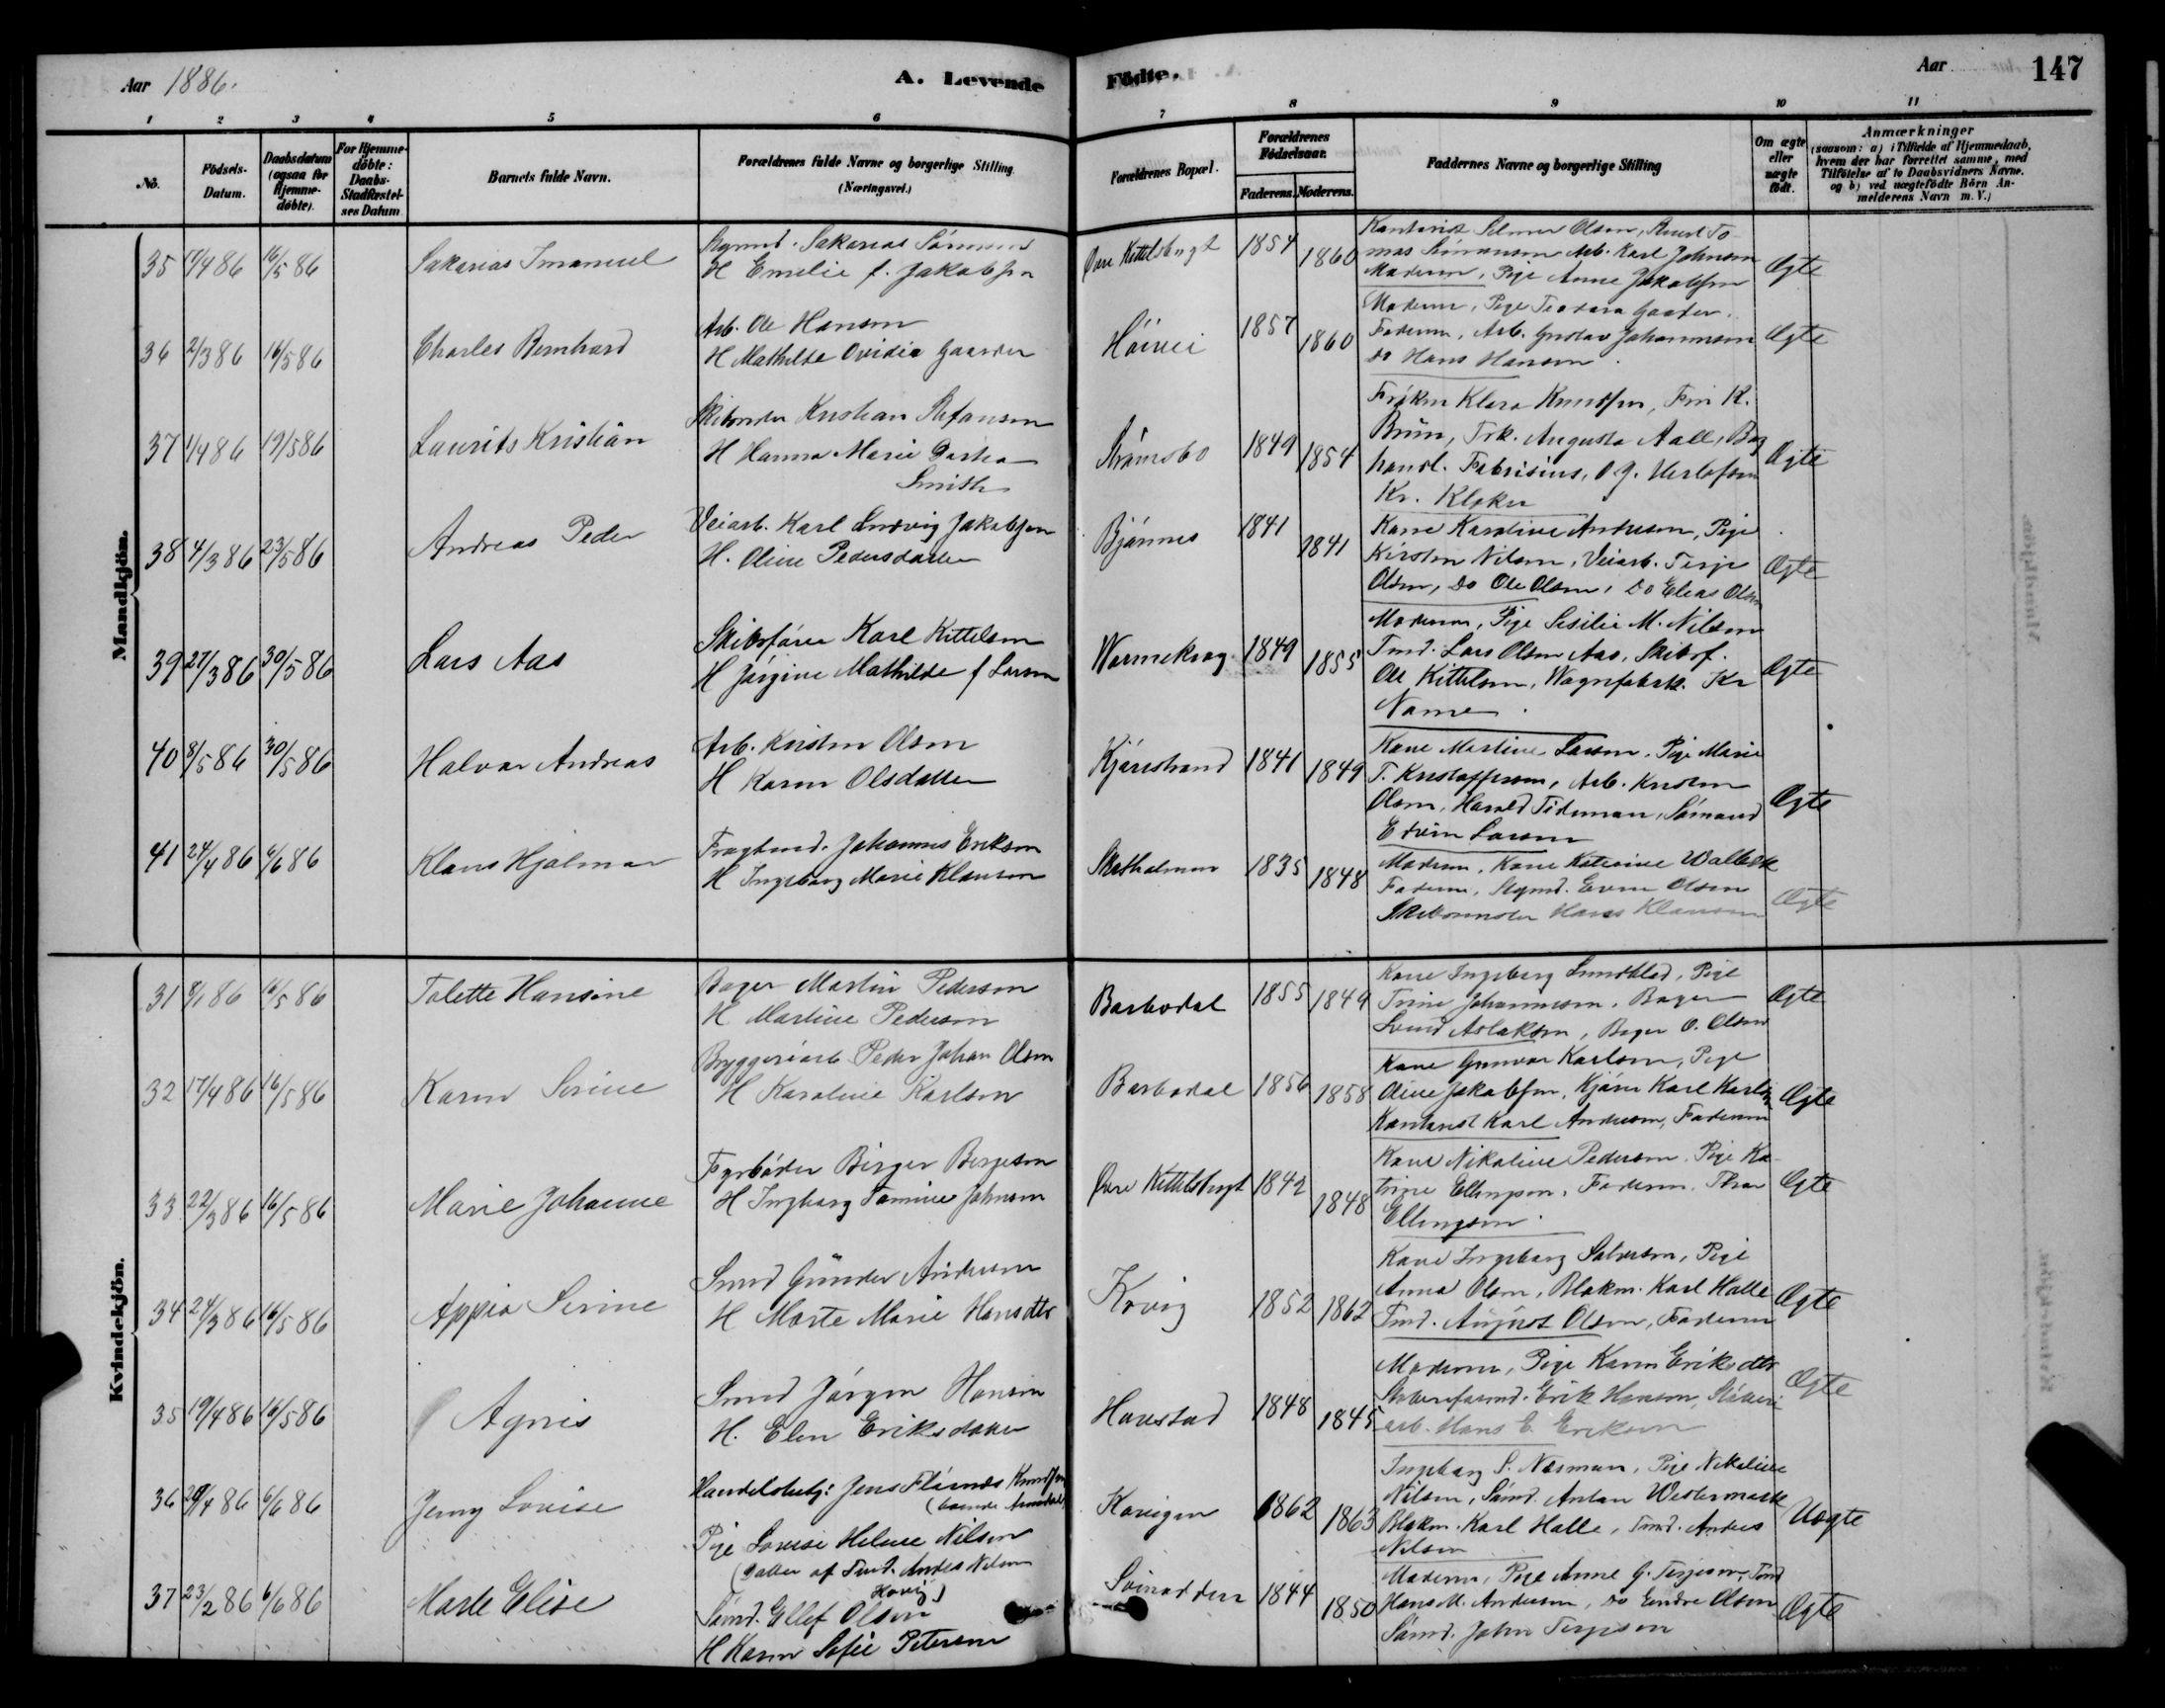 Aar 1886.
A. Levende
Födte.
Aar
147
1 2 3 4 5 6 7 8 9 10 11
No.
Födsels-Datum.
Daabsdatum (ogsaa for Hjemme-döbte).
For Hjemme-döbte: Daabs-Stadfæstel-ses Datum
Barnets fulde Navn.
Forældrenes fulde Navne og borgerlige Stilling (Næringsvei.)
Forældrenes Bopæl.
Forældrenes Födselsaar.
Faderens. Moderens.
Faddernes Navne og borgerlige Stilling
Om ægte eller uægte födt.
Anmærkninger
(saasom: a) i Tilfælde af Hjemmedaab,
hvem der har forrettet samme, med
Tilföielse af to Daabsvidners Navne.
og b) ved uægtefödte Börn An-
melderens Navn m. V.)
Mandkjön.
35 17/4 86 16/5 86 Sakarias Imanuel
H Emilie f. Jakobsen
Övre Kittelsbugt 1854 1860
Kontorist Selmer Olsen,
Arb. Karl Johnsen
Moderen, Pige Anne Jakobsen
Ægte
36 2/3 86 16/5 86 Charles Bernhard
Arb. Ole Hansen
H Mathilde Ovidia Gaarder
Höivei 1857 1860
Moderen, Pige Teodora Gaarder.
Faderen, Arb. Gustav Johannesen
do Hans Hansen.
Ægte
37 1/4 86 19/5 86 Laurits Kristian
Kristian Stefansen
H Hanna Marie
Smith
Strömsbo 1849 1854
Fröken Klara Knudsen, Fru K.
Brun, Frk. Augusta Aall, Bog
handl. Fabrisius, O. J. Herlofsen
Kr. Klöker
Ægte
38 4/3 86 23/5 86 Andreas Peder
Veiarb. Karl Ludvig Jakobsen
H. Oline Pedersdatter
Bjönnes 1841 1841
Kone Karoline Andersen, Pige
Kirsten Nilsen, Veiarb. Terje
Olsen, do Ole Olsen, do Elias Olsen
Ægte
39 27/3 86 30/5 86 Lars Aas
Skibsförer Karl Kittelsen
H Jörgine Mathilde f Larsen
Warmekrog 1849 1855
Moderen, Pige Sesilie M. Nilsen
Tmd. Lars Olsen Aas, Skibsf.
Ole Kittelsen, Wognfabrk. Kr
Næme.
Ægte
40 8/5 86 30/5 86 Halvor Andreas
Arb. Kristen Olsen
H Karen Olsdatter
Kjörestrand 1841 1849
Kone Martine Larsen, Pige Marie
T. Kristoffersen, Arb. Kristen
Olsen, Harald Tideman, Sömand
Edvin Larsen
Ægte
41 24/4 86 6/6 86 Klaus Hjalmar
Johannes Eriksen
H Ingeborg Marie Klausen
Skotholmen 1835 1848
Moderen, Kone Katrine
Faderen, Even Olsen
Hans Klausen
Ægte
Kvindekjön.
31 8/1 86 16/5 86 Tolette Hansine
Bager Martin Pedersen
H Martine Pedersen
Barbodal 1855 1849
Kone Ingeborg Lundblad, Pige
Trine Johannesen, Bager
Svend Aslaksen, Bager O. Olsen
Ægte
32 17/4 86 16/5 86 Karen Serine
Bryggeriarb. Peder Johan Olsen
H Karoline Karlsen
Barbodal 1856 1858
Kone Gunvor Karlsen, Pige
Oline Jakobsen, Kjörer Karl Karlsen
Kontorist Karl Andersen, Faderen
Ægte
33 22/3 86 16/5 86 Marie Johanne
Fyrböder Birger Bergesen
H Ingborg Tomine Johnsen
Övre Kittelsbugt 1842 1848
Kone Nikoline Pedersen, Pige Ka-
trine Ellingsen, Faderen, Thor
Ellingsen.
Ægte
34 24/3 86 16/5 86 Appia Serine
Smed Gunder Andersen
H Marte Marie Hansdtr
Kovig 1852 1862
Kone Ingeborg Salvesen, Pige
Anna Olsen, Blokm. Karl Halle
Tmd. August Olsen, Faderen
Ægte
35 19/4 86 16/5 86 Agnes
Smed Jörgen Hansen
H. Elen Eriksdatter
Harestad 1848 1845
Moderen, Pige Karen Eriksdtr
Erik Hansen,
arb. Hans E. Eriksen
Ægte
36 20/4 86 6/6 86 Jenny Lovise
Handelsbetj: Jens Flörnæs Knudsen
Pige Lovise Helene Nilsen
(Datter af Tmd. Anders Nilsen
Kovig)
Kovigen 1862 1863
Ingeborg S. Næsman, Pige Nikoline
Nilsen, Sömd. Anton Westermark
Blokm. Karl Halle, Tmd. Anders
Nilsen
Uægte
37 23/2 86 6/6 86 Marte Elise
Sömd. Ellef Olsen
H Karen Sofie Petersen
Svinodden 1844 1850
Moderen, Pige Anne G. Terjesen, Tmd
Hans M. Andersen, do Endre Olsen
Sömd. John Terjesen
Ægte